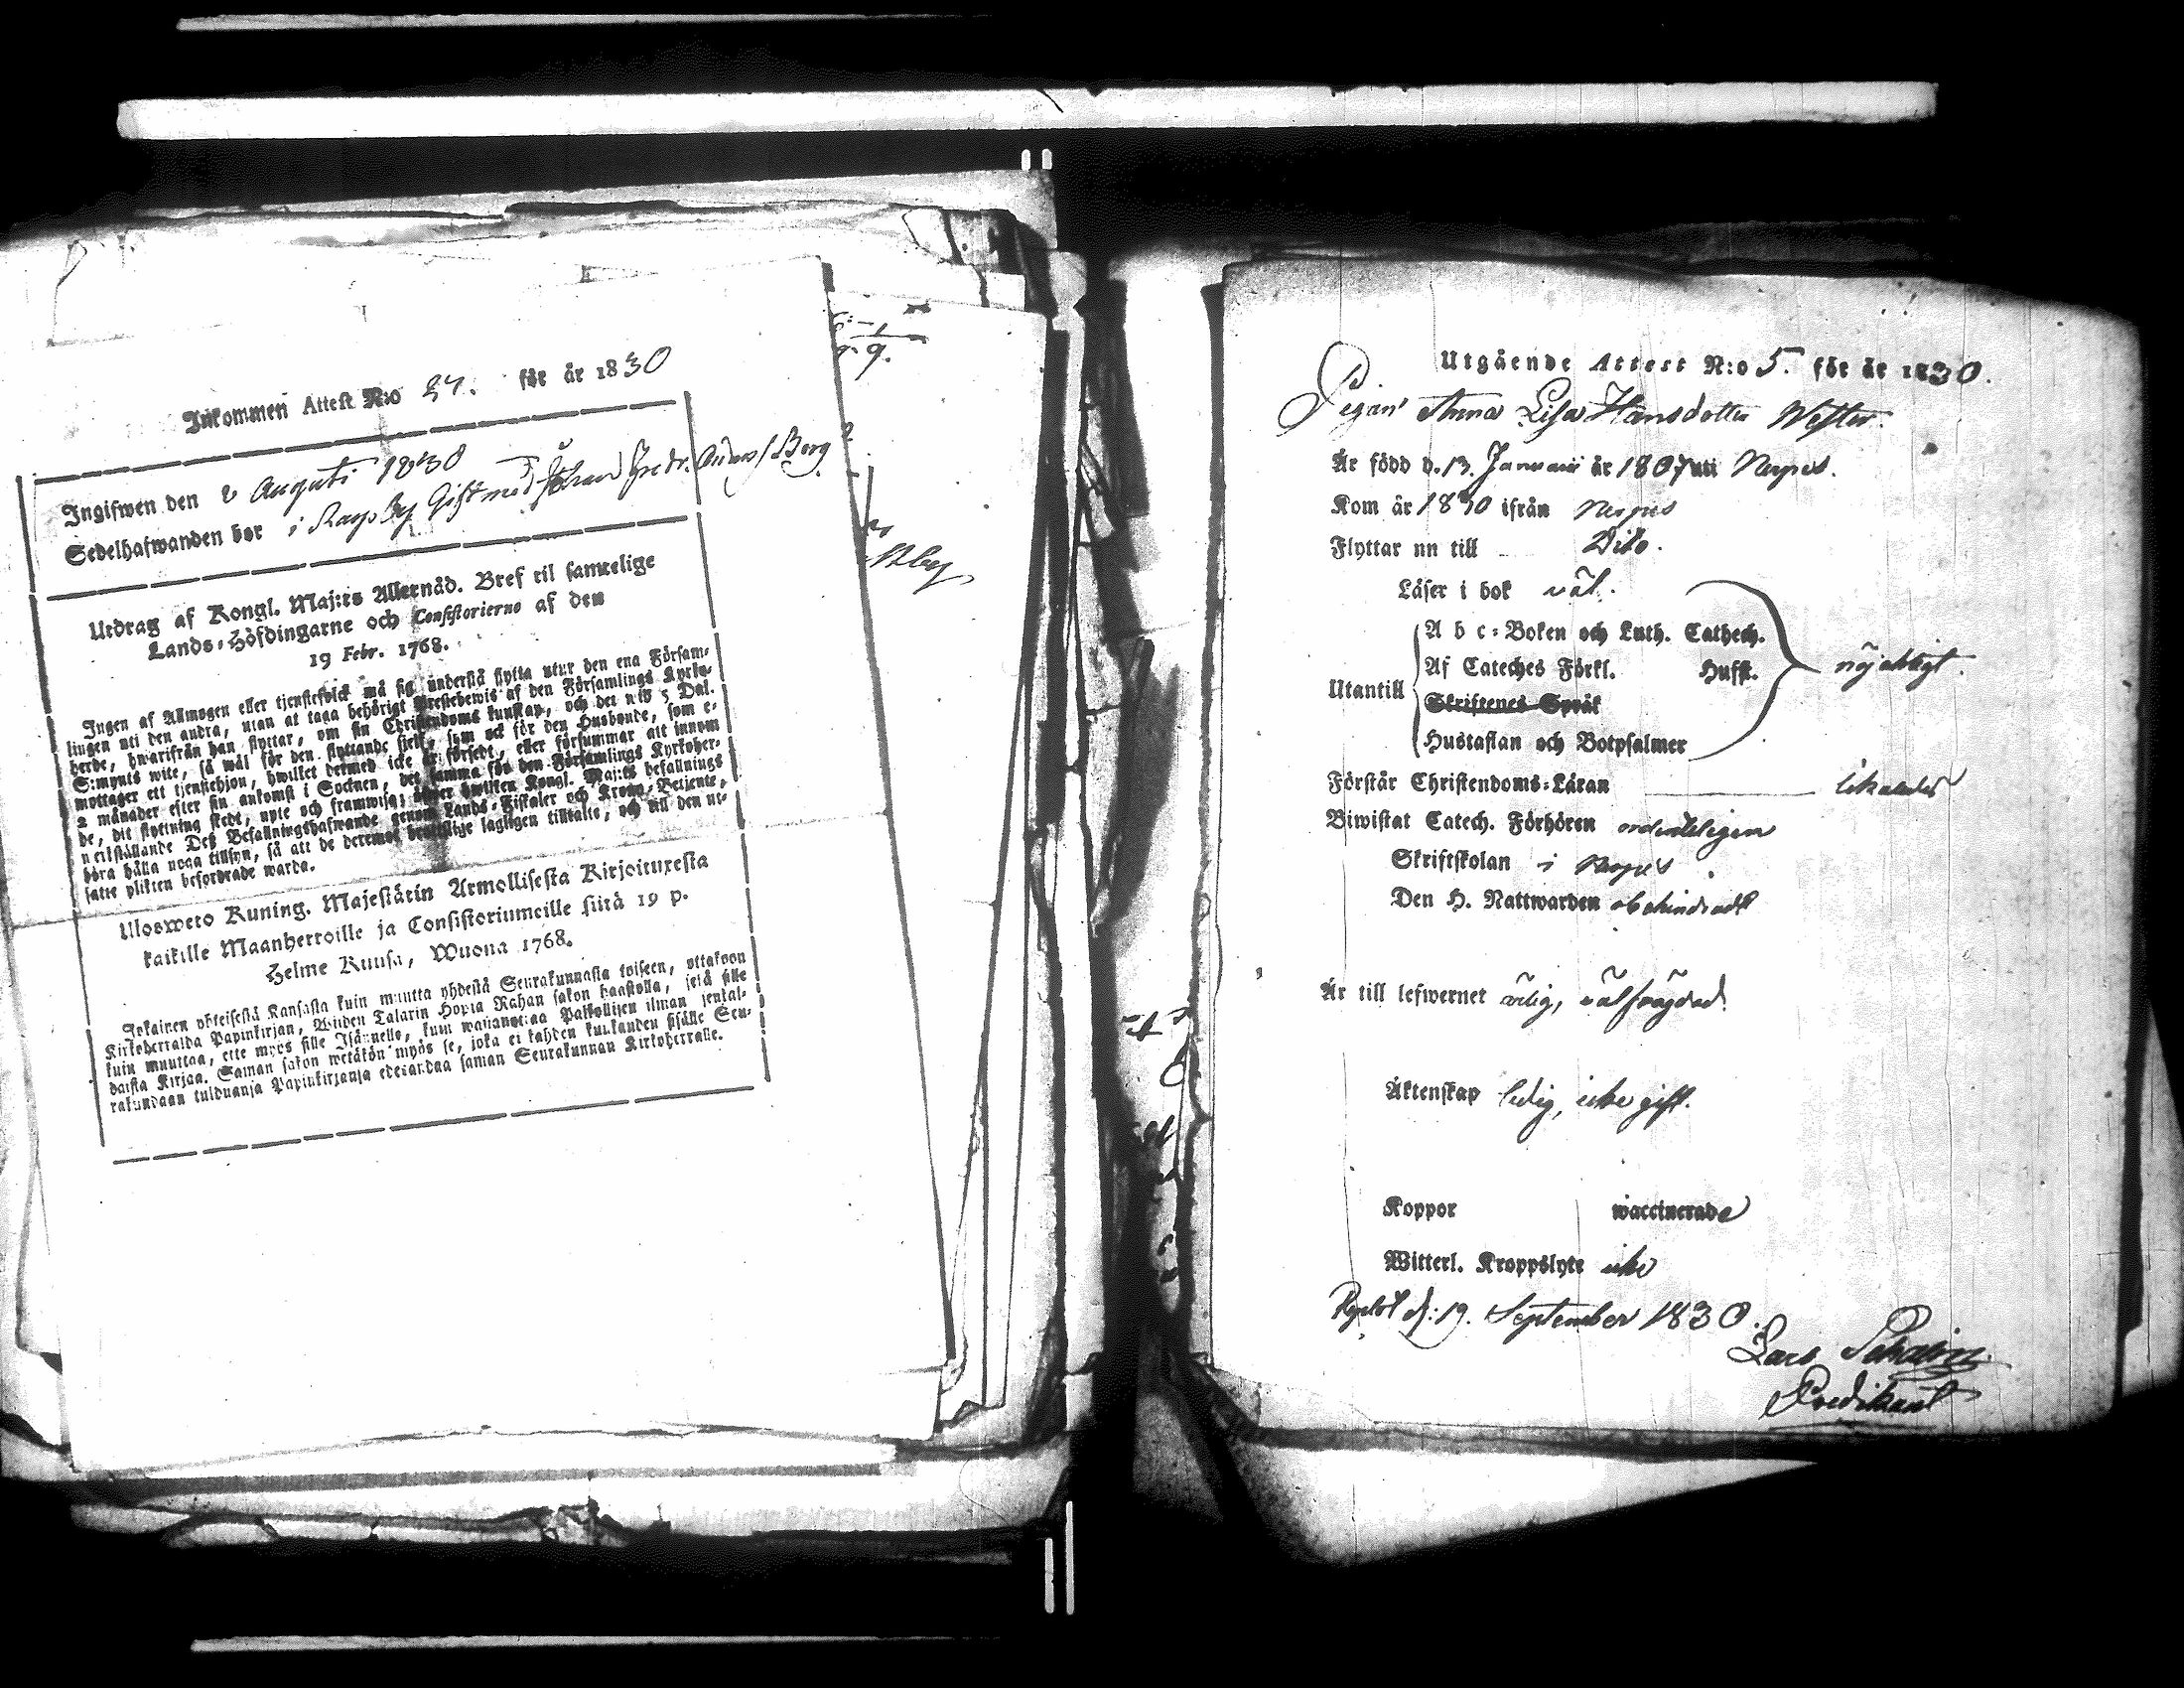 Inkommen Attest N:o 27. för år 1830
Ingifwen den 2 Augusti 1830
Sedelhafwanden bor i Gift med Johan Fredr. Berg
Utdrag af Kongl. Maj:ts Allernåd. Bref til samtelige
Lands-Höfdingarne och Consistorierne af den
19 Febr. 1768.
Ingen af Allmogen eller tjenstefolck må sig understå flytta utur den ena Försam-
lingen uti den andra, utan at taga behörigt Prestebewis af den Församlings Kyrko-
herde, hwarifrån han flyttar, om sin Christendoms kunskap, och det wid 5 Dal.
S:mynts wite, så wäl för den flyttande sjelf, som ock för den Husbonde, som e-
mottager ett tjenstehjon, hwilket dermed icke är försedt, eller försummar att innom
2 månader efter sin ankomst i Socknen, det samma för den Församlings Kyrkoher-
de, dit flyttning skedt, upte och framwisa; öfwer hwilken Kongl. Maj:ts befallnings
werkställande Deß Befallningshafwande genom Lands-Fiskaler och Krono-Betjente,
böra hålla noga tillsyn, så att de deremot lagligen tilltalte, och till den ut-
satte plikten befordrade warda.
Ulosweto Kuning. Majestätin Armollisesta Kirjoituxesta
kaikille Maanherroille ja Consistoriumeille siitä 19 p.
Helme Kuusa, Wuona 1768.
Jokainen yhteisestä Kansasta kuin muutta yhdestä Seurakunnasta toiseen, ottakoon
Kirkoherralda Papinkirjan, Wiiden Talarin Hopia Rahan sakon haastolla, sekä sille
kuin muuttaa, ette myös sille Isännelle, kuin Palkollisen ilman senkal-
daista Kirjaa. Saman sakon wetäkön myös se, joka ei kahden kuukauden sisälle Seu-
rakundaan tulduansa Papinkirjansa edesandaa saman Seurakunnan Kirkoherralle.
Utgående Attest N:o 5. för år 1830.
Pigan Anna Lisa Hansdotter Wester.
Är född d. 13. Januarii år 1807 uti Nerpes.
Kom år 1830 ifrån Nerpes
Flyttar nu till Dito.
Läser i bok väl.
A b c-Boken och Luth. Cathech.
Af Cateches Förkl. Hufst.
Utantill nöjaktigt.
Skriftenes Språk
Hustaflan och Botpsalmer
Förstår Christendoms-Läran likaledes
Biwistat Catech. Förhören ordenteligen
Skriftskolan i Nerpes
Den H. Nattwarden obehindradt
Är till lefwernet ärlig, välfrägdad.
Äktenskap ledig, icke gift.
Koppor waccinerade
Witterl. Kroppslyte icke
Replot d: 19. September 1830.
Lars
Predikant